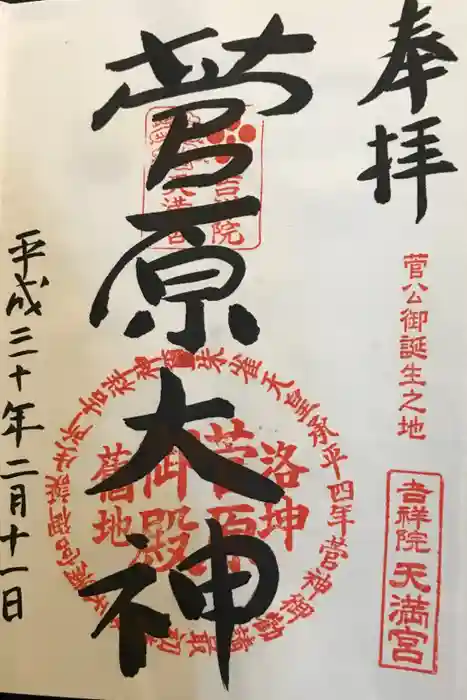 奉拝
菅公御誕生之地
吉祥院天満宮
菅原大神
吉祥院
天満宮
朱雀天皇承平四年菅神御勅
洛坤
菅原
御殿
舊地
平成三十年二月十一日